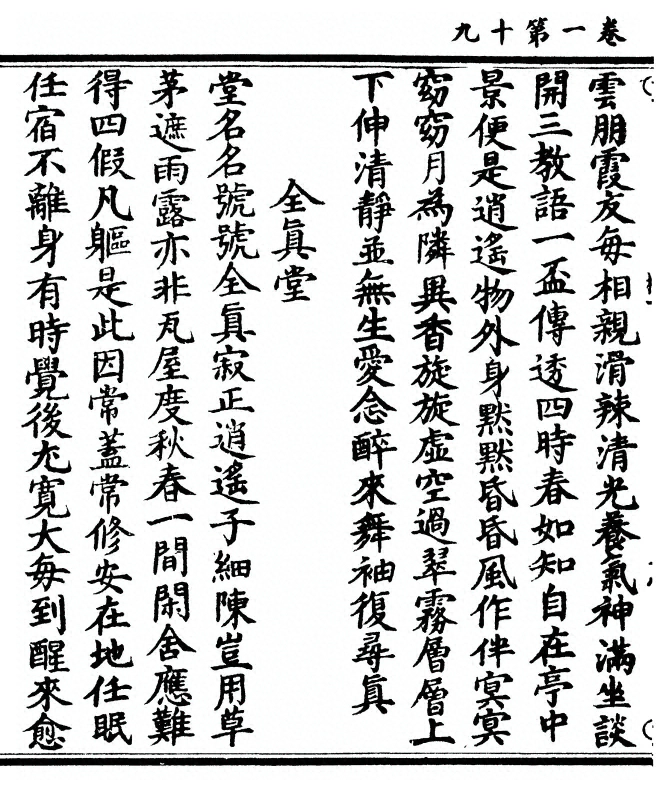 卷一第十九
雲朋霞友每相親滑辣清光養氣神滿坐談
開三教語一盃傳透四時春如知自在亭中
景便是逍遙物外身默默昏昏風作伴冥冥
窈窈月為隣異香旋旋虛空過翠霧層層上
下伸清靜並無生愛念醉來舞袖復尋真
全真堂
堂名名號號全真寂正逍遙子細陳豈用草
茅遮雨露亦非瓦屋度秋春一間閑舍應難
得四假凡軀是此因常蓋常修安在地任眠
任宿不離身有時覺後尤寬大每到醒來愈